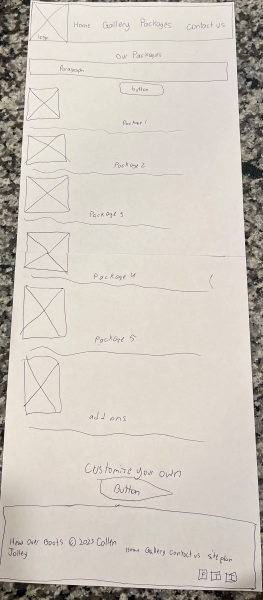 Logo
Home Gallery Packages Contact us
Our Packages
Paragraph
button
Package 1
Package 2
Package 3
Package 4
Package 5
add ons
Customize your own
Button
Head Over Boots © 2023 Colten
Jolley
Home Gallery Contact us site plan
F I